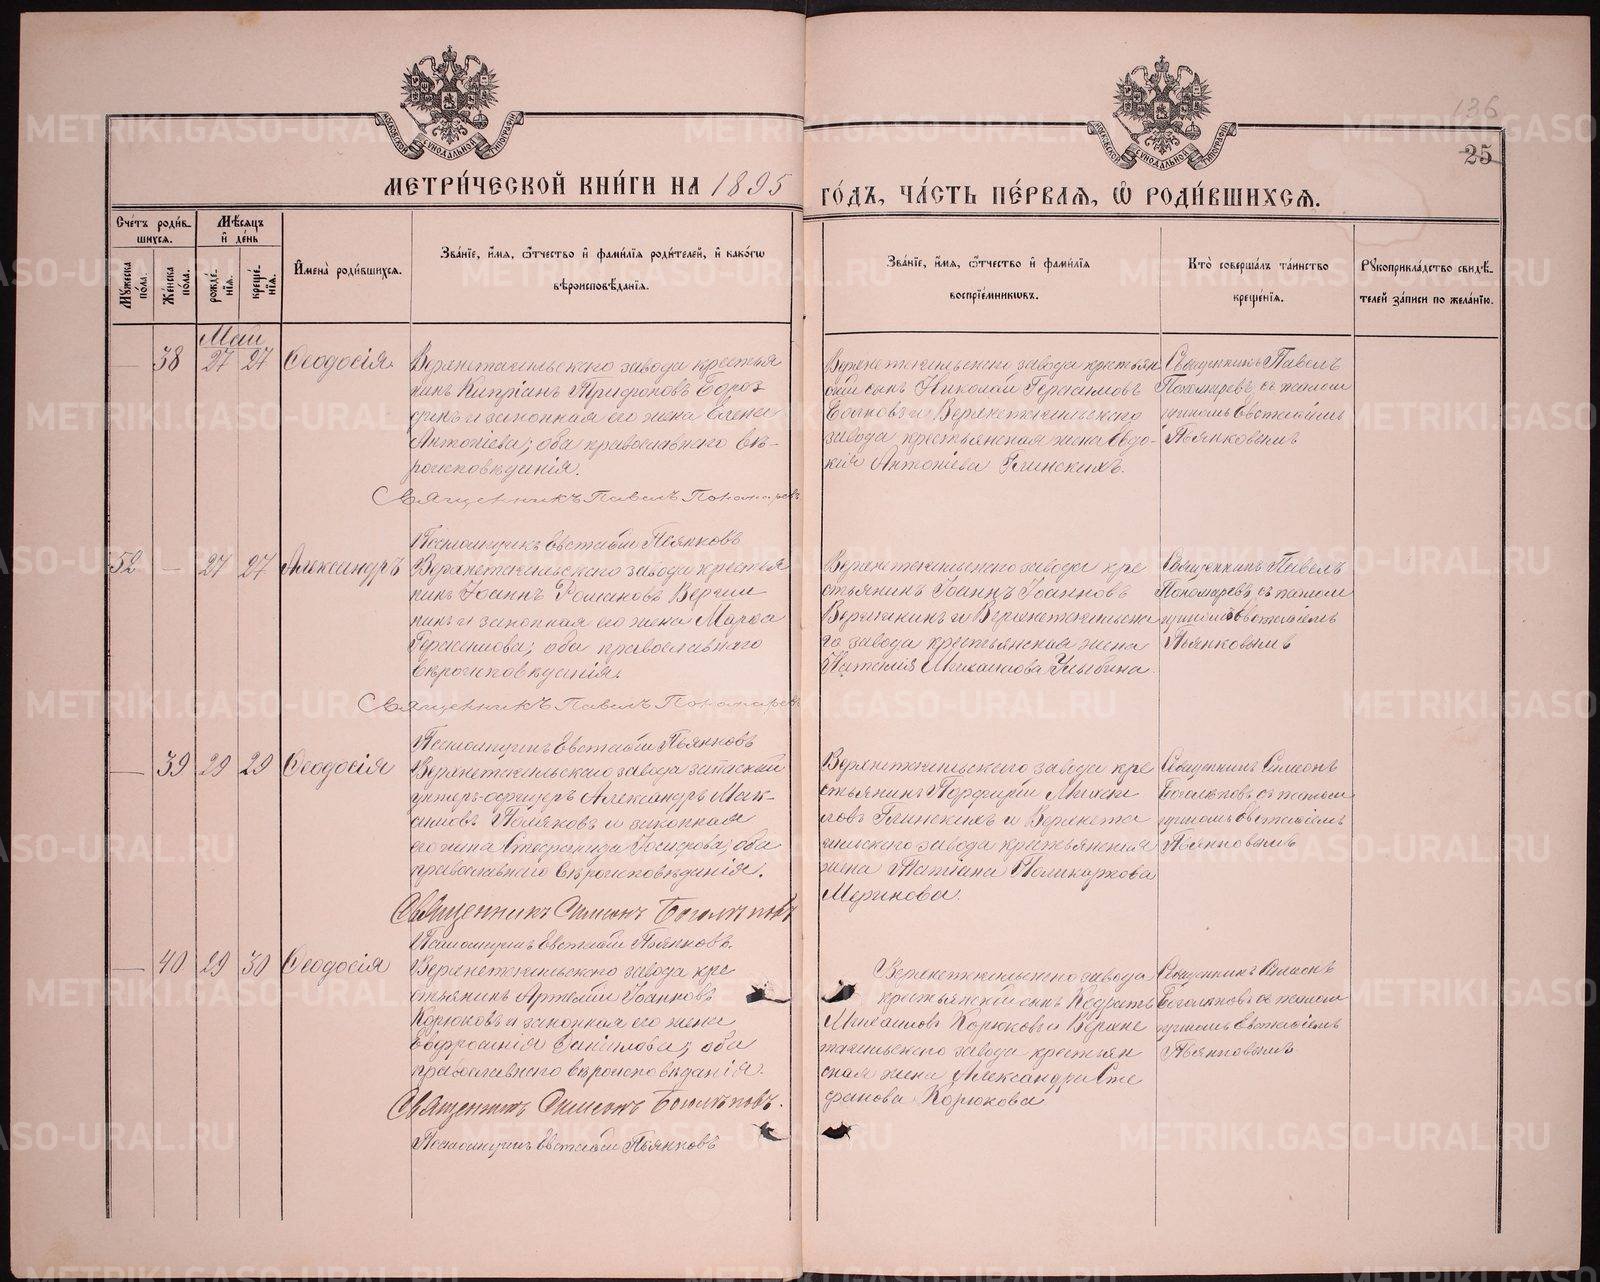 136
25
МОСКОВСКОЙ СѴНОДАЛЬНОЙ ТИПОГРАФІИ
МОСКОВСКОЙ СѴНОДАЛЬНОЙ ТИПОГРАФІИ
МЕТРИ́ЧЕСКОЙ КНИ́ГИ НА 1895
ГО́ДЪ, ЧА́СТЬ ПЕ́РВАЯ, Ѽ РОДИ́ВШИХСЯ.
Сче́тъ роди́в-
шихся.
Му́жеска по́ла.
Же́нска по́ла.
Мѣ́сяцъ
и де́нь
рожде́нія.
креще́нія.
И҆мена̀ роди́вшихся.
Зва́нїе, и҆́мя, ѻ҆́тчество и҆ фами́лїя роди́телей, и҆ како́гѡ
вѣроисповѣ́данїя.
Зва́нїе, и҆́мя, ѻ҆́тчество и҆ фами́лїя
воспрїе́мникѡвъ.
Кто̀ соверша́лъ та́инство
креще́нїя.
Рукоприкла́дство свидѣ́-
телей за́писи по жела́нїю.
Май
— 38 27 27 Ѳеодосія.
Верхнетагильскаго завода крестья
нинъ Кипріанъ Трифоновъ Бороз
динъ и законная его жена Елена
Антоніева; оба православнаго вѣ-
роисповѣданія.
Священникъ Павелъ Пономаревъ
Псаломщикъ Евстафій Пьянковъ
Верхнетагильскаго завода крестьян
скій сынъ Николай Герасимовъ
и Верхнетагильскаго
завода крестьянская жена Евдо-
кія Антоніева Глинскихъ.
Священникъ Павелъ
Пономаревъ съ псалом
щикомъ Евстафіемъ
Пьянковымъ
52 — 27 27 Александръ
Верхнетагильскаго завода крестья
нинъ Іоаннъ Романовъ
и законная его жена Марѳа
Герасимова; оба православнаго
вѣроисповѣданія.
Священникъ Павелъ Пономаревъ
Псаломщикъ Евстафій Пьянковъ
Верхнетагильскаго завода кре
стьянинъ Іоаннъ Іоанновъ
и Верхнетагильска
го завода крестьянская жена
Наталія Михаилова Улыбина.
Священникъ Павелъ
Пономаревъ съ псалом
щикомъ Евстафіемъ
Пьянковымъ
— 39 29 29 Ѳеодосія
Верхнетагильскаго завода запасный
унтеръ-офицеръ Александръ Мак-
симовъ Поляковъ и законная
его жена Стефанида Іосифова; оба
православнаго вѣроисповѣданія.
Священникъ Симеонъ Боголѣповъ
Псаломщикъ Евстафій Пьянковъ.
Верхнетагильскаго завода кре
стьянинъ Порфирій Михаи
ловъ Глинскихъ и Верхнета
гильскаго завода крестьянская
жена Татіана Поликарпова
Меринова.
Священникъ Симеонъ
Боголѣповъ съ псалом
щикомъ Евстафіемъ
Пьянковымъ
— 40 29 30 Ѳеодосія
Верхнетагильскаго завода кре
стьянинъ Артемій Іоанновъ
Корюковъ и законная его жена
Евфросинія Даніилова; оба
православнаго вѣроисповѣданія.
Священникъ Симеонъ Боголѣповъ.
Псаломщикъ Евстафій Пьянковъ
Верхнетагильскаго завода
крестьянскій сынъ Кодратъ
Михаиловъ Корюковъ и Верхне
тагильскаго завода крестьян
ская жена Александра Сте
фанова Корюкова
Священникъ Симеонъ
Боголѣповъ съ псалом
щикомъ Евстафіемъ
Пьянковымъ
METRIKI.GASO-URAL.RU